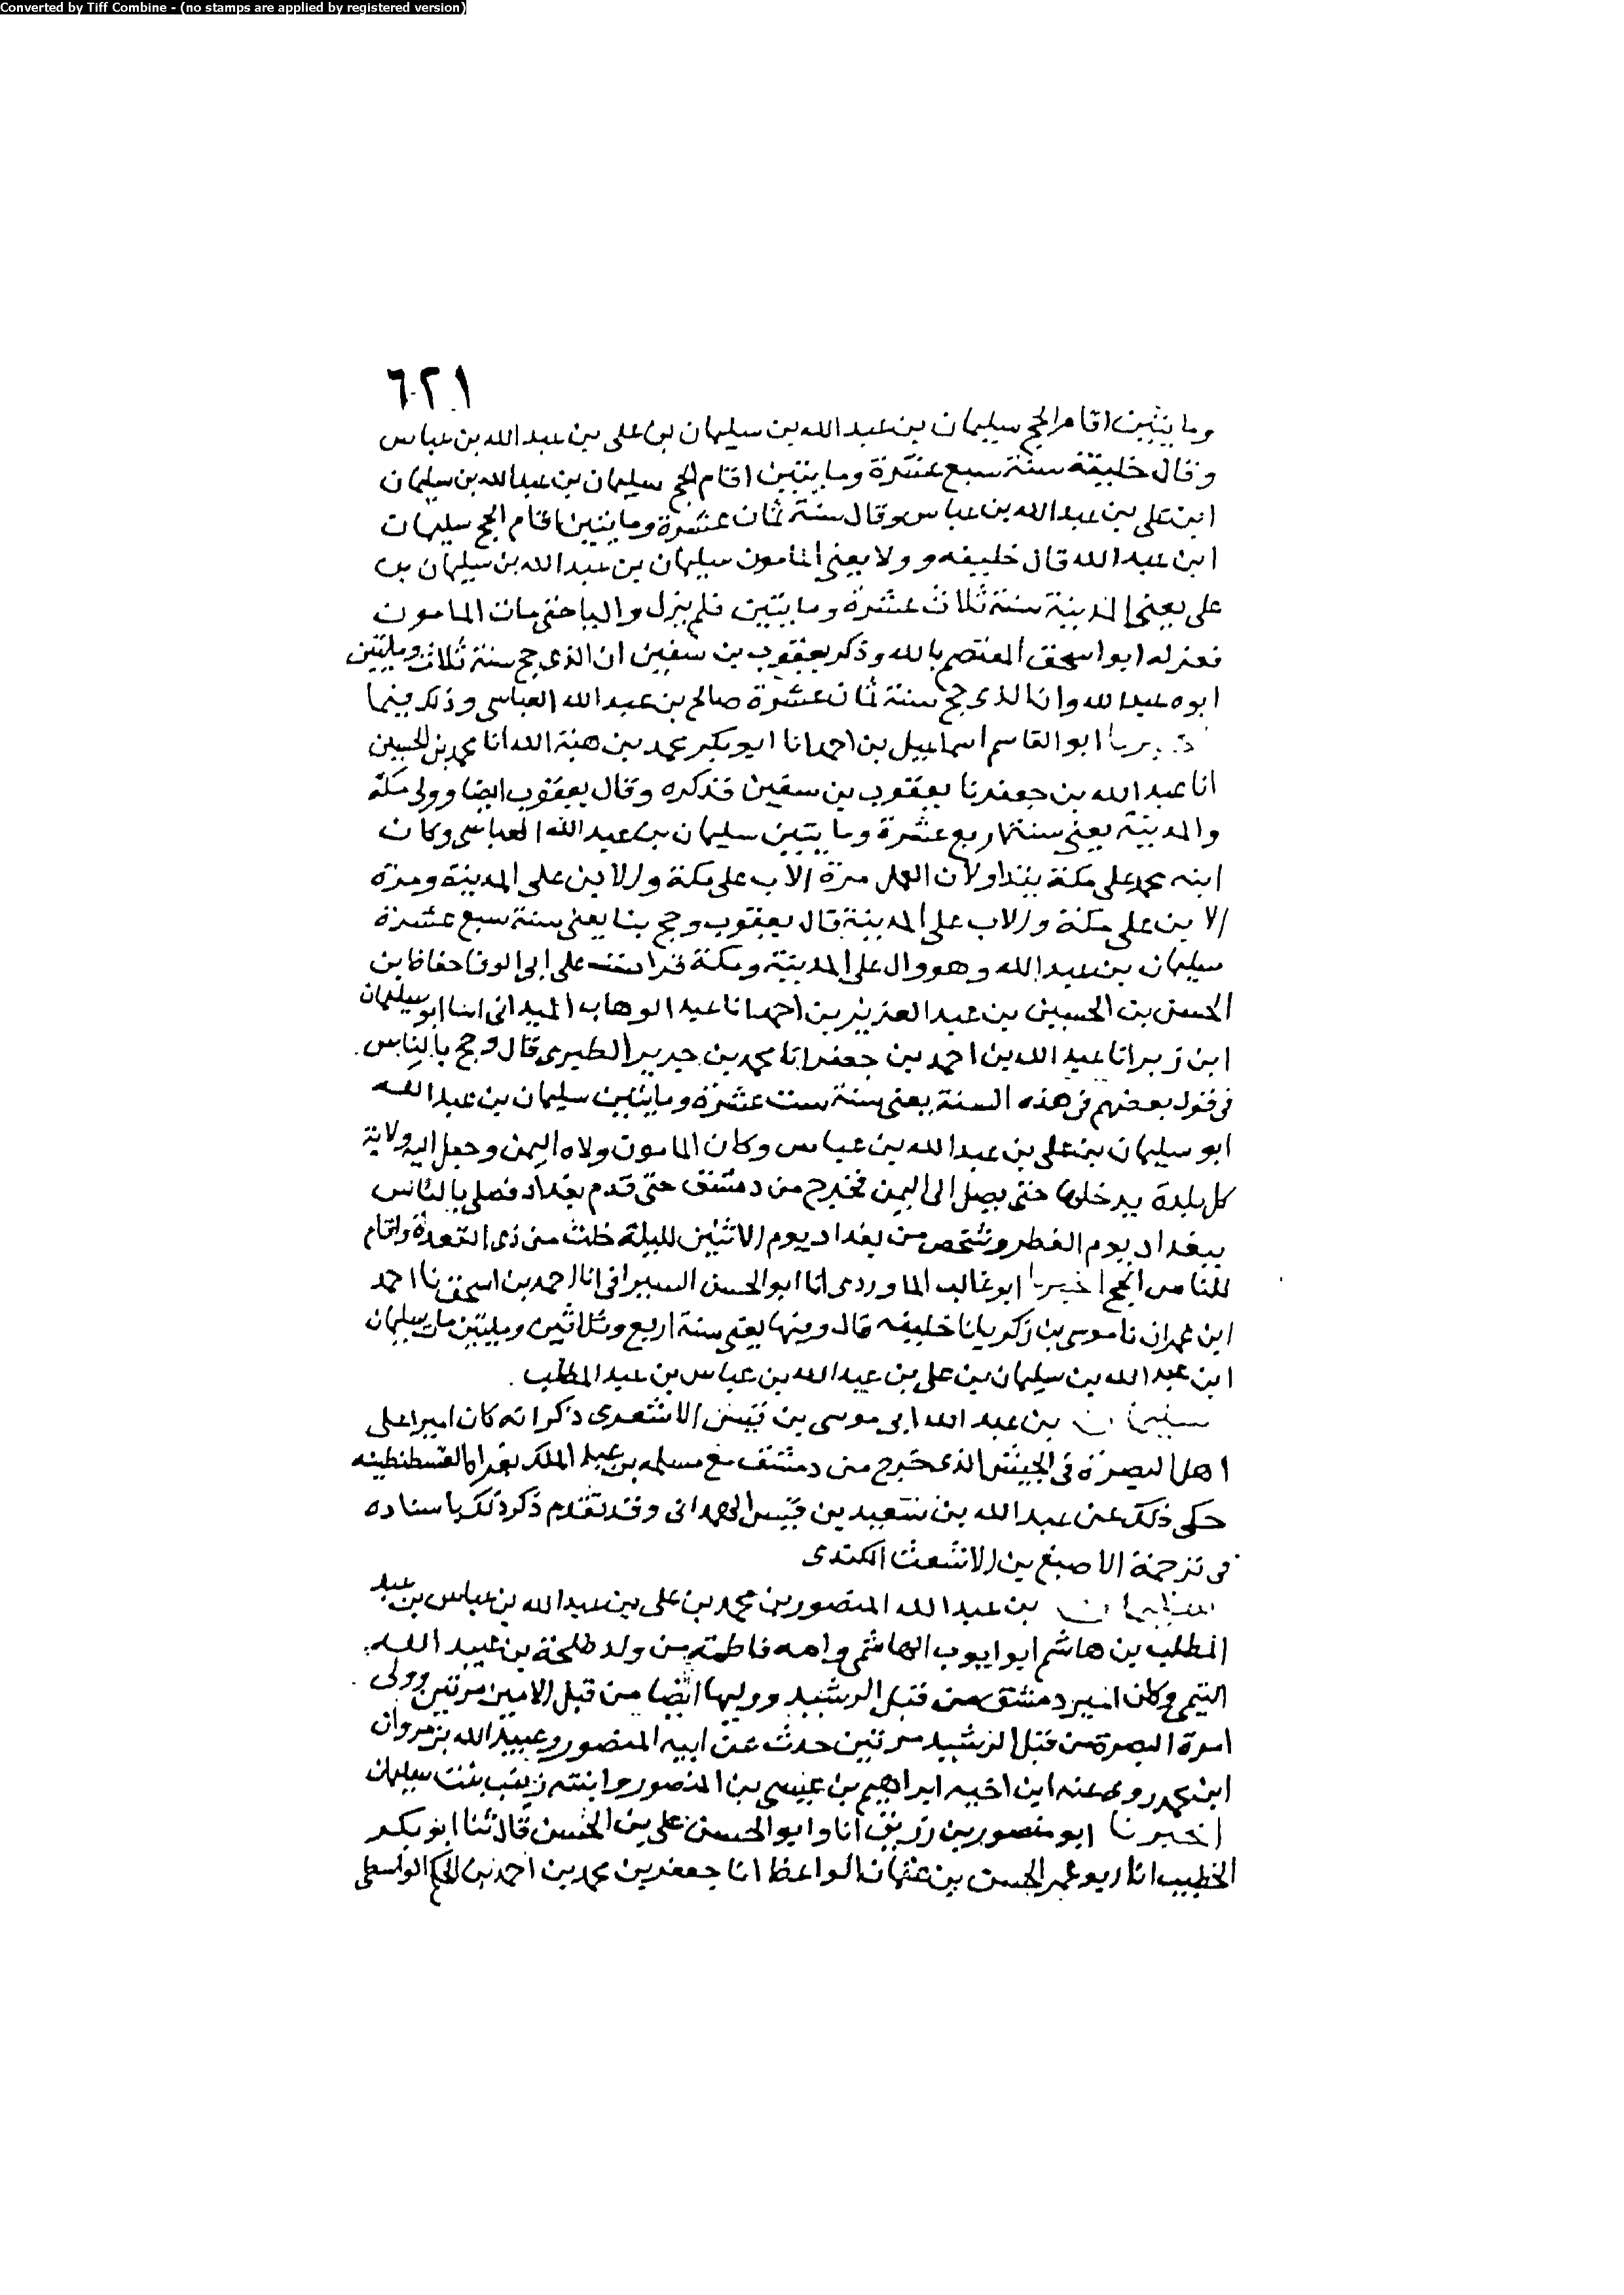 Converted by Tiff Combine - (no stamps are applied by registered version)
٦٢١
ومايتين اقام الحج سليمان بن عبد الله بن سليمان بن على بن عبد الله بن عباس
وقال خليفة سنة سبع عشرة ومايتين اقام الحج سليمان بن عبد الله بن سليمان
ابن على بن عبد الله بن عباس وقال سنة ثمان عشرة ومايتين اقام الحج سليمان
ابن عبد الله قال خليفه وولا يعنى المامون سليمان بن عبد الله بن سليمان بن
على يعنى المدينة سنة ثلاث عشرة ومايتين فلم يزل واليا حتى مات المامون
فعزله ابو اسحق المعتصم بالله وذكر يعقوب بن سفين ان الذى حج سنة ثلاث ومايتين
ابوه عبد الله وان الذى حج سنة ثمان عشرة صالح بن عبد الله العباسى وذلك فيما
ابو القاسم اسماعيل بن احمد انا ابو بكر محمد بن هبة الله انا محمد بن الحسين
انا عبد الله بن جعفر نا يعقوب بن سفين فذكره وقال يعقوب ايضا وولى مكة
والمدينة يعنى سنة اربع عشرة ومايتين سليمان بن عبد الله العباسى وكان
ابنه محمد على مكة يتداولان العمل مرة الاب على مكة والابن على المدينة ومرة
الابن على مكة والاب على المدينة قال يعقوب وحج بنا يعنى سنة سبع عشرة
سليمان بن عبد الله وهو وال على المدينة ومكة قرات على ابى الوفا حفاظ بن
الحسن بن الحسين بن عبد العزيز بن احمد انا عبد الوهاب الميدانى انا ابو سليمان
ابن زبر انا عبد الله بن احمد بن جعفر انا محمد بن جرير الطبرى قال وحج بالناس
فى قول بعضهم فى هذه السنة يعنى سنة ست عشرة ومايتين سليمان بن عبد الله
ابو سليمان بن على بن عبد الله بن عباس وكان المامون ولاه اليمن وجعل اليه ولاية
كل بلدة يدخلها حتى يصل الى اليمن فخرج من دمشق حتى قدم بغداد فصلى بالناس
ببغداد يوم الفطر وشخص من بغداد يوم الاثنين لليلة خلت من ذى القعدة واقام
للناس الحج اخبرنا ابو غالب الماوردى انا ابو الحسن السيرافى انا احمد بن اسحق نا احمد
ابن عمران نا موسى بن زكريا نا خليفه قال وفيها يعنى سنة اربع وثلاثين ومايتين مات سليمان
ابن عبد الله بن سليمان بن على بن عبد الله بن عباس بن عبد المطلب .
سليمان بن عبد الله ابى موسى بن قيس الاشعرى ذكر انه كان اميرا على
اهل البصرة فى الجيش الذى خرج من دمشق مع مسلمه بن عبد الملك لغزاة القسطنطينه
حكى ذلك عن عبد الله بن سعيد بن قيس الهمدانى وقد تقدم ذكر ذلك باسناده
فى ترجمة الاصبغ بن الاشعث الكندى
سليمان بن عبد الله المنصور بن محمد بن على بن عبد الله بن عباس بن عبد
المطلب بن هاشم ابو ايوب الهاشمى وامه فاطمة من ولد طلحة بن عبيد الله
التيمى وكان امير دمشق من قبل الرشيد ووليها ايضا من قبل الامين مرتين وولى
امرة البصرة من قبل الرشيد مرتين حدث عن ابيه المنصور وعبيد الله بن مروان
ابن محمد روى عنه ابن اخيه ابراهيم بن عيسى بن المنصور وابنته زينب بنت سليمان
اخبرنا ابو منصور بن زريق انا وابو الحسن على بن الحسن قال ثنا ابو بكر
الخطيب انا ابو عمر الحسن بن عثمان الواعظ انا جعفر بن محمد بن احمد بن الحكم الواسطى